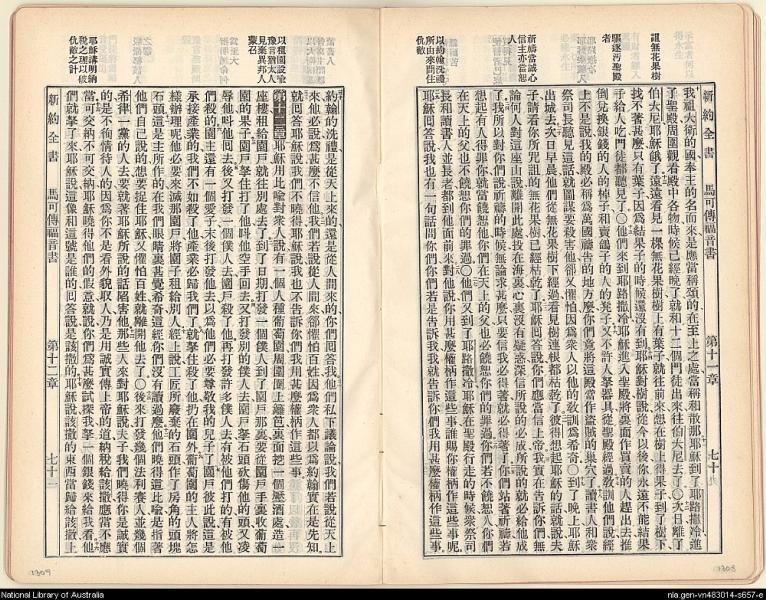 新約全書 馬可傳福音書 第十一章 七十
詛無花果樹
驅逐汚聖殿者
祈禱當誠心信主亦當恕人
以約翰洗禮所由來問住仇敵
我祖大衛的國奉主的名而來是應當稱頌的在至上之處當稱和散那耶穌到了耶路撒冷進
了聖殿周圍觀看殿中各物時候已經晚了就和十二個門徒出來往伯大尼去了○次日離了
伯大尼耶穌餓了遠遠看見一棵無花果樹樹上有葉子就往前來想在樹上得果子到了樹下
找不著甚麽只有葉子因爲結果子的時候還沒有到耶穌對樹說從今以後你永遠不能結果
子給人吃門徒都聽見了○他們來到耶路撒冷耶穌進入聖殿將裏面作買賣的人趕出去推
倒兌換銀錢的人的棹子和賣鴿子的人的凳子又不許人拏器具從聖殿經過敎訓他們說經
上不是說我的殿必稱爲萬國禱吿的地方麽你們竟將這殿當作盜賊的巢穴了讀書人和衆
祭司長聽見這話就圖謀要殺害他卻又懼怕因爲衆人以他的敎訓爲希奇○到了晚上耶穌
出城去次日早晨他們從無花果樹下經過看見樹連根都枯乾了彼得想起耶穌的話就說夫
子請看你所咒詛的無花果樹已經枯乾了耶穌回答說你們應當信上帝我實在吿訴你們無
論何人對這座山說離開此處投在海裏心裏沒有疑惑深信所說的必成所說的就必給他成
了我所以對你們說祈禱的時候無論求甚麽只要信我必得著就必得著了你們站著祈禱若
想起有人得罪你就當饒恕他你們在天上的父也必饒恕你們的罪過你們若不饒恕人你們
在天上的父也不饒恕你們的罪過○他們又到了耶路撒冷耶穌在聖殿行走的時候衆祭司
長和讀書人並長老都到他面前來對他說你用甚麽權柄作這些事誰賜你權柄作這些事呢
耶穌回答說我也有一句話問你們你們若是吿訴我我就吿訴你們我用甚麽權柄作這些事
以租園設喻豫言猶太人見棄異邦人蒙召
耶穌講明納稅之理以破仇敵之計
約翰的洗禮是從天上來的還是從人間來的你們回答我他們私下議論說我們若說從天上
來他必說爲甚麽不信他我們若說從人間來卻懼怕百姓因爲衆人都以爲約翰實在是先知
就回答耶穌說我們不曉得耶穌說我也不吿訴你們我用甚麽權柄作這些事
第十二章耶穌用比喻對衆人說有一個人種葡萄園周圍圈上籬笆裏面挖一個壓酒處造一
座樓租給園戶就往別處去了到了日期打發一個僕人到了園戶那裏要從園戶手裏收葡萄
園的果子園戶拏住打了他叫他空手回去又打發別的僕人去園戶拏石頭打傷他的頭又凌
辱他叫他回去後又打發一個僕人去園戶殺了他再打發許多僕人去有被他們打的有被他
們殺的園主還有一個愛子末後打發他去以爲他們必要尊敬我的兒子了園戶彼此說這是
承接產業的我們不如殺了他產業必歸我們了就拏住殺了他扔在園外葡萄園的主人將怎
樣辦理呢他必要來滅那園戶將園子租給別人經上說工匠所廢棄的石頭作了房角的頭塊
石頭這是主所作的在我們眼睛裏甚覺希奇這經你們沒有讀過麽他們曉得這比喻是指著
他們自己說的想要捉住耶穌又懼怕百姓就離開他去了○後來打發幾個法利賽人並幾個
希律一黨的人去要就耶穌所說的話陷害他那些人來對耶穌說夫子我們曉得你是誠實
的是不徇情待人的因爲你不是看外貌取人乃是用誠實傳上帝的道納稅給該撒應當不應
當可交納不可交納耶穌曉得他們的假意就說你們爲甚麽試探我拏一個銀錢來給我看他
們就拏了來耶穌說這像和這號是誰的回答說是該撒的耶穌說該撒的東西當歸給該撒上
新約全書 馬可傳福音書 第十二章 七十一
1309
1308
National Library of Australia
nla.gen-vn483014-s657-e